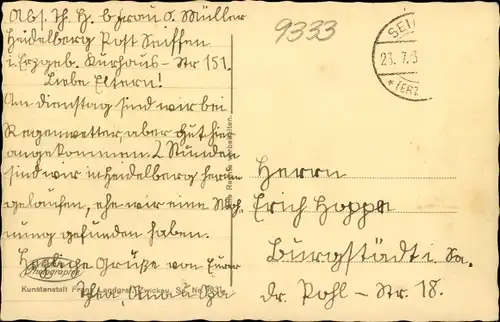 Abs. Th. H. b. Frau S. Müller
Heidelberg Post Seiffen
i. Erzgeb. Kurhaus-Str 151.
Liebe Eltern!
Am Dienstag sind wir bei
Regenwetter, aber gut hier
angekommen. 2 Stunden
sind wir in Heidelberg herum
gelaufen, ehe wir eine Woh-
nung gefunden haben.
Herzliche Grüße von Eurer
Thea, und
9333
23. 7. 3
(ERZ
Herrn
Erich Hoppe
Burgstädt i. Sa.
dr. Pohl-Str. 18.
Photographie
Kunstanstalt Franz Landgraf, Zwickau, Sa. Nr.
Rechte vorbehalten.